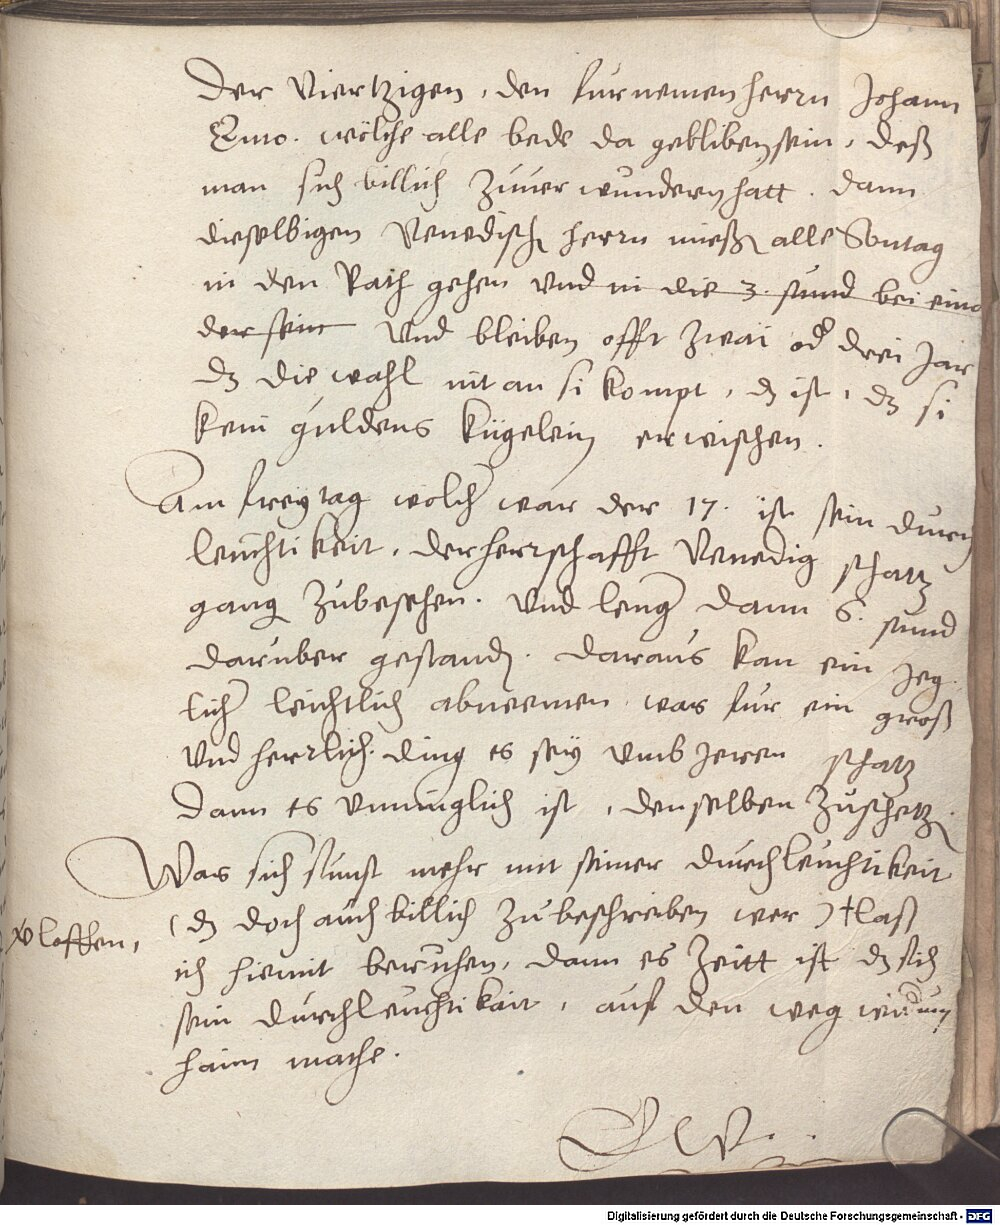 der Viertzigen, den furnemen herrn Johann
Emo. wölche alle bede da gebliben sein, deß
man sich billich zuuerwundern hatt. dann
dieselbigen Venedisch herrn mieß alle Sontag
in den Rath gehen vnd in die 3. stund bei eina
der sein vnd bleiben offt zwai od drei Jar
dz die wahl nit an si kompt, dz ist, dz si
kein guldens kügelein erwischen.
Am freytag wölch war der 17. ist sein durch
leuchtikeit, der herrschafft Venedig schatz
gang zubesehen. vnd leng dann 6. stund
daruber gestand. daraus kan ein jeg
lich leichtlich abneemen was fur ein groß
vnd herrlich ding es sey vmb jeren schatz
dann es vnmuglich ist, denselben zuschetz.
Was sich sunst mehr mit seiner durchleuchtikeit
(dz doch auch billich zubeschreiben wer) laß
loffen,
ich hiemit beruhen, dann es zeitt ist dz sich
sein durchleuchtikait, auf den weg widrum
haim mache.
Digitalisierung gefördert durch die Deutsche Forschungsgemeinschaft - DFG